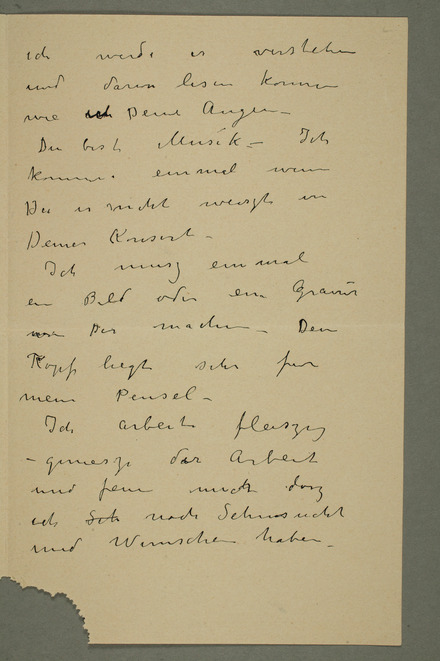 ich werde es verstehen
und darin lesen können
wie Deine Augen –
Du bist Musik – Ich
komme einmal wenn
Du es nicht weiszt in
Deines Konzert –
Ich musz einmal
ein Bild oder eine Gravur
von Dir machen – Dein
Kopf liegt sehr fur
mein Pensel –
Ich arbeite fleiszig
– geniesze der Arbeit
und freue mich dasz
ich noch Sehnsucht
und Wunschen haben –